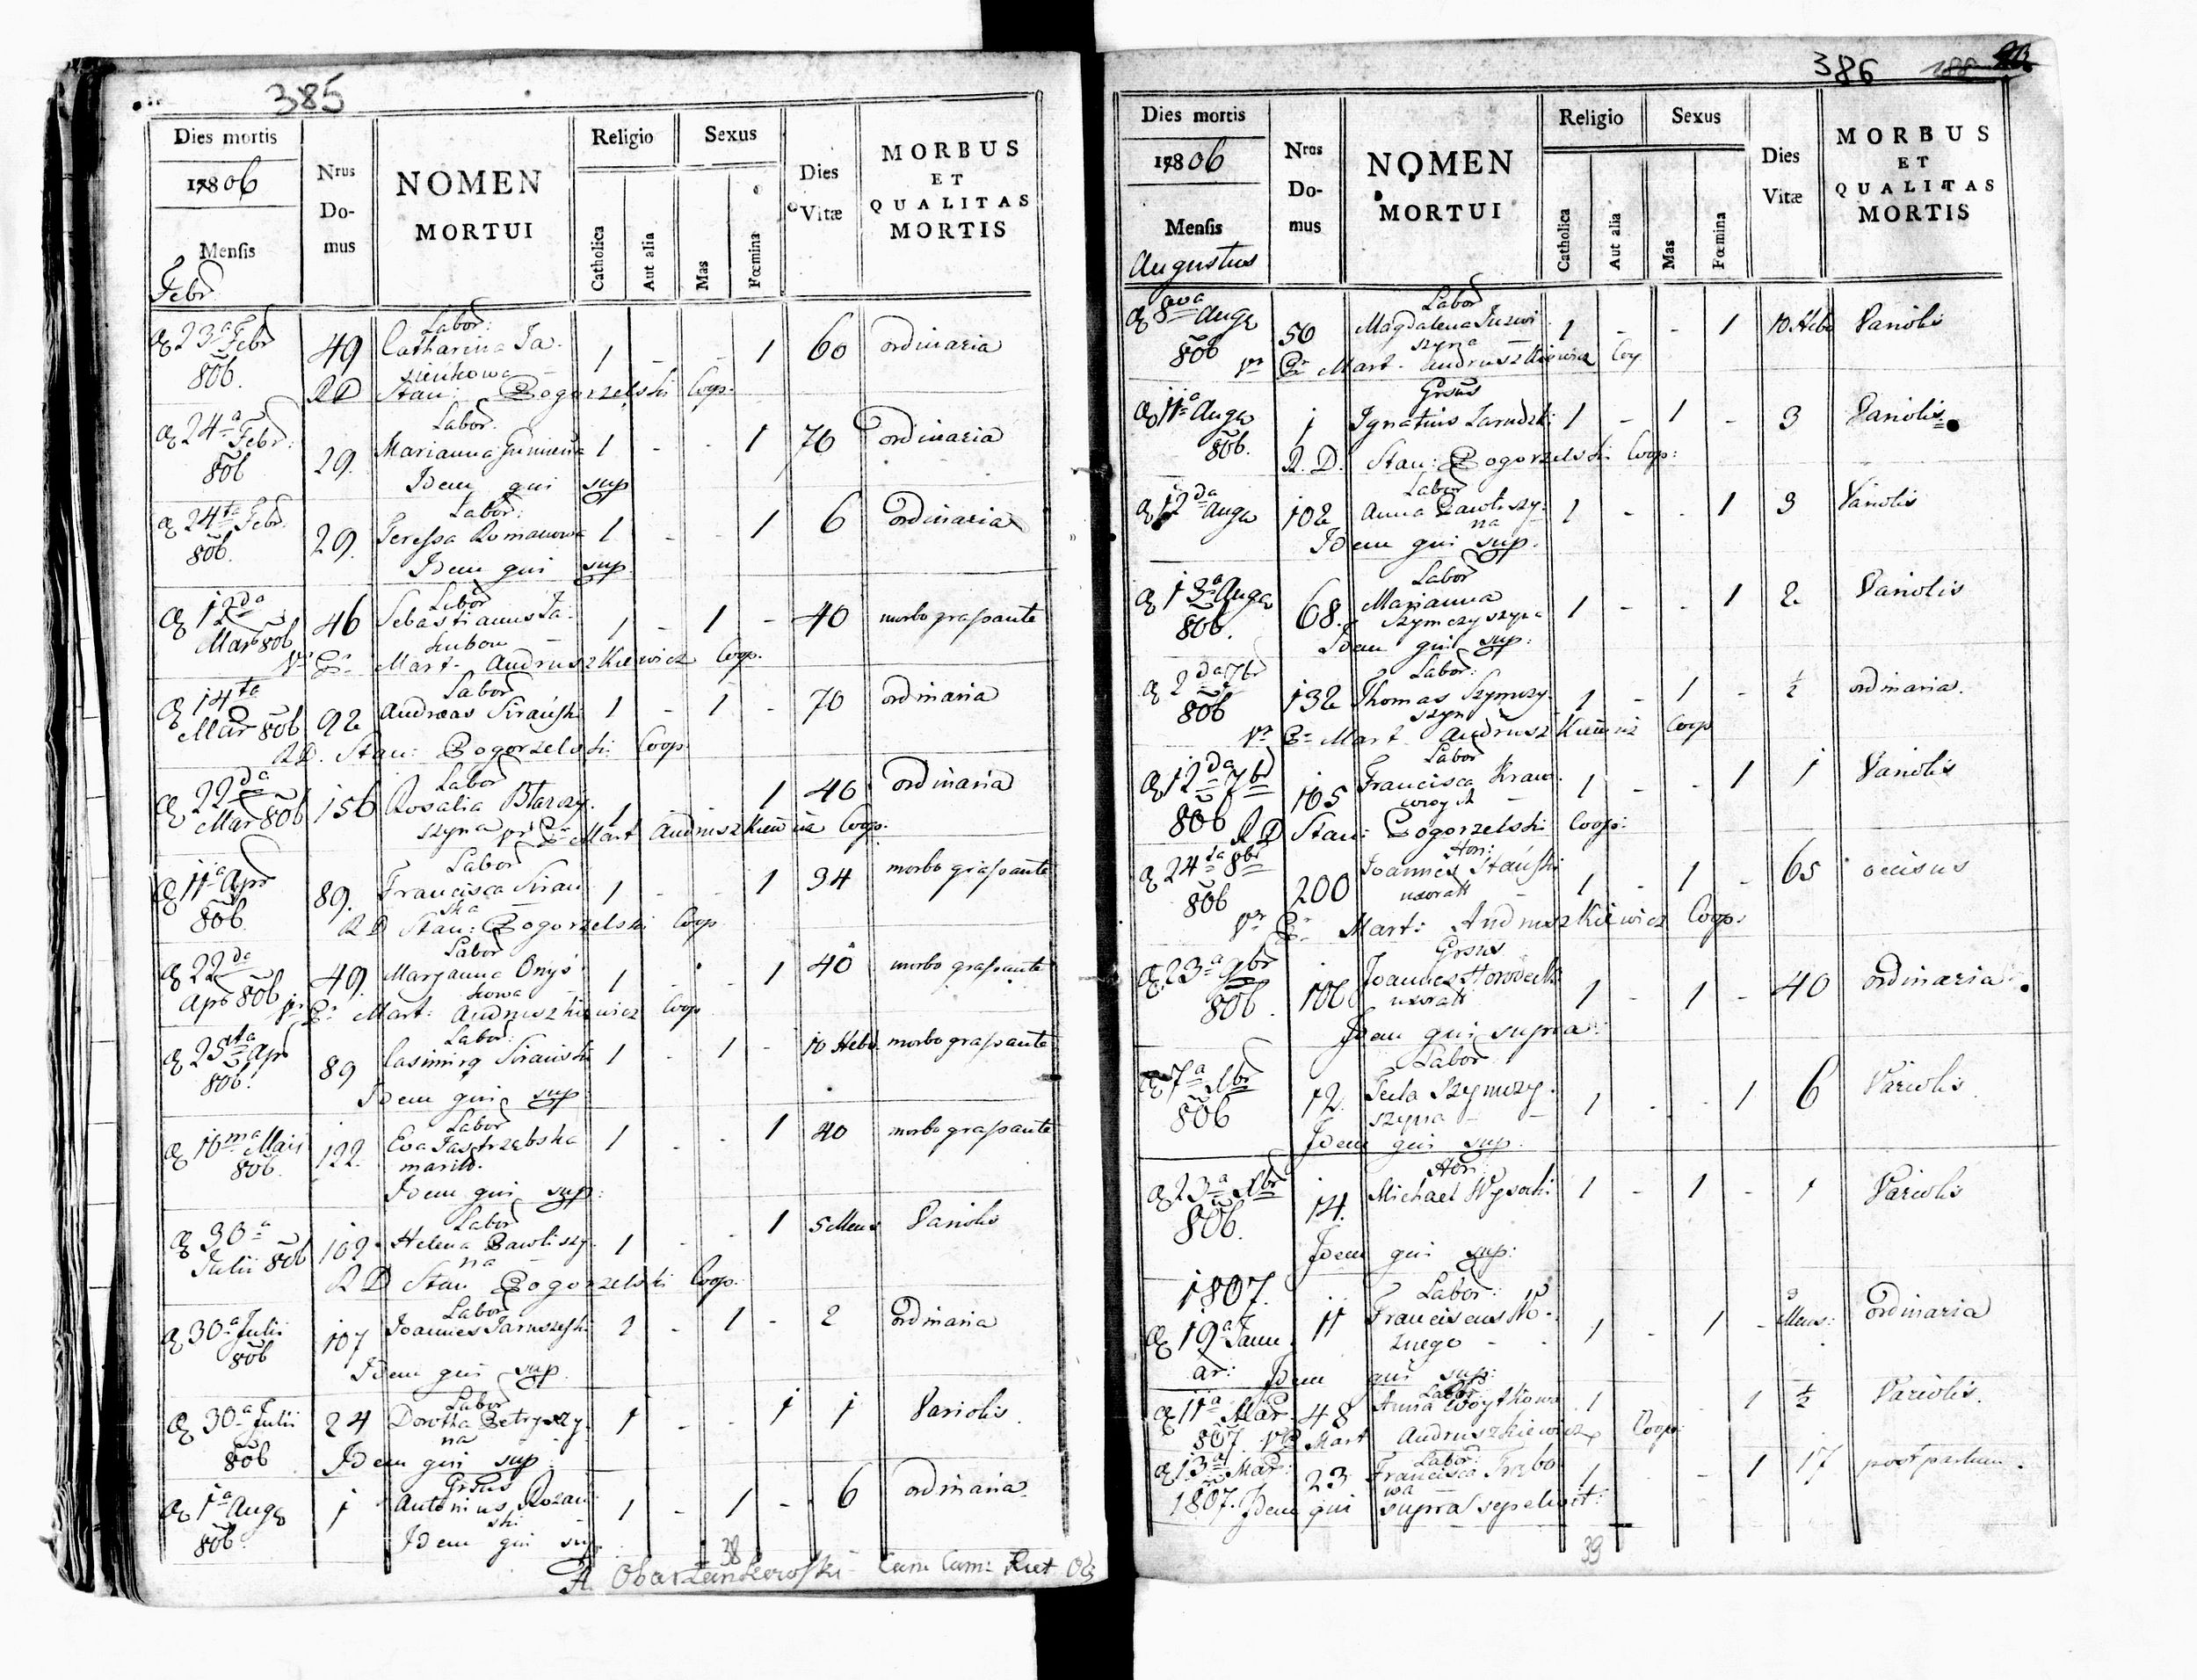 385
Dies mortis
1806
Mensis
Febr
Nrus
Do-
mus
NOMEN
MORTUI
Religio
Catholica
Aut alia
Sexus
Mas
Fœmina
Dies
Vitæ
MORBUS
ET
QUALITAS
MORTIS
23a Febr 49 Labor: Catharina Ja- 1 - - 1 60 ordinaria
806.
RD Stan: Pogorzelski Coop.
24a Febr: 29. Labor. Marianna 1 - - 1 70 ordinaria
806
Idem qui sup
24ta Febr. 29. Labor: Teressa Romanowa 1 - - 1 6 ordinaria
806.
Idem qui sup
12da 46 Labor Sebastianus Ja- 1 - 1 - 40 morbo grassante
Mar 806
Mart. Andruszkiewicz Coop.
14ta 92 Labor Andreas Sirański 1 - 1 - 70 ordinaria
Mar 806
RD. Stan: Pogorzelski Coop
22da 156 Labor Rosalia Blazzy- 1 - - 1 46 ordinaria
Mar 806
szyna Mart Andruszkiewicz Coop.
11a Apr 89. Labor Francisca Siran- 1 - - 1 34 morbo grassante
806 ska
RD Stan: Pogorzelski Coop
22da 49. Labor Maryanna Onys- 1 - - 1 40 morbo grassante
Apr 806 kowa
Mart: Andruszkiewicz Coop
25ta Apr 89 Labor: Casimirg Sirański 1 - 1 - 10 Hebd. morbo grassante
806.
Idem qui sup
10ma Maii 122. Labor Eva Jastrzębska 1 - - 1 40 morbo grassante
806. marit.
Idem qui sup:
30a 102 Labor Helena Pawliszy- 1 - - 1 5 Mens Variolis
Julii 806 na
RD Stan Pogorzelski Coop.
30a Julii 107 Labor Joannes Jaruszeski 1 - 1 - 2 ordinaria
806
Idem qui sup
30a Julii 24 Labor Dorotha Petryszy- 1 - - 1 1 Variolis
806 na
Idem qui sup
1a Augg 1 Grsus Antonius Rozan- 1 - 1 - 6 ordinaria
806 ski
Idem qui sup
38
386
Dies mortis
1806
Mensis
Augustus
Nros
Do-
mus
NOMEN
MORTUI
Religio
Catholica
Aut alia
Sexus
Mas
Fœmina
Dies
Vitæ
MORBUS
ET
QUALITAS
MORTIS
8va Augg 50 Labor Magdalena Juzwi- 1 - - 1 10 Hebd Variolis
806 szyna
Mart. Andruszkiewicz Coop
11a Augg 1 Grsus Ignatius Jarudzki 1 - 1 - 3 Variolis
806.
R. D. Stan: Pogorzelski Coop:
12da Augg 102 Labor Anna Pawliszy- 1 - - 1 3 Variolis
na
Idem qui sup.
13a Augg 68. Labor Marianna 1 - - 1 2 Variolis
806. Szymczyszyna
Idem qui sup:
2da 7br 132 Labor: Thomas Szymczy- 1 - 1 - ½ ordinaria.
806 szyn
Mart Andruszkiewicz Coop
12da 7br 105 Labor Francisca Kraw- 1 - - 1 1 Variolis
806
RD Stan: Pogorzelski Coop:
24ta 8br 200 Hon: Joannes Stański 1 - 1 - 65 occisus
806 uxoratt
Mart: Andruszkiewicz Coop:
23a 9br 106 Grsus Joannes Horodecki 1 - 1 - 40 ordinaria
806. uxoratt
Idem qui supra:
7a Xbr 12. Labor Tecla Szymczy- 1 - - 1 6 Variolis
806 szyna
Idem qui sup.
23a Xbr 14. Hon: Michael Wysocki 1 - 1 - 1 Variolis
806.
Idem qui sup:
1807.
19a Janu- 11 Labor: Franciscus No- 1 - 1 - 3 Mens: ordinaria
ar: znego
Idem qui sup:
11a Mar. 48 Labor: Anna Woytkowa 1 1 ½ Variolis.
807. Mart Andruszkiewicz Coop:
13a Mar: 23 Labor: Francisca Trąbo- 1 - - 1 17 post partum.
1807. wa
Idem qui supra sepelivit:
39